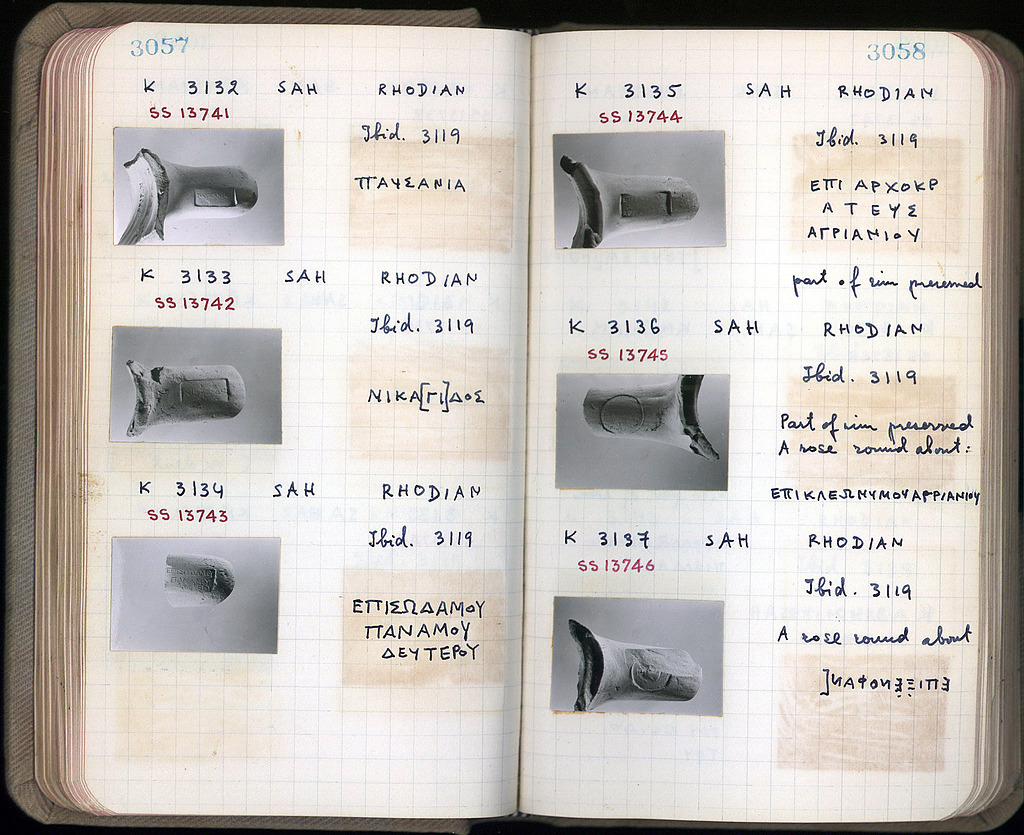 3057
K 3132 SAH RHODIAN
SS 13741
Ibid. 3119
ΠΑΥΣΑΝΙΑ
K 3133 SAH RHODIAN
SS 13742
Ibid. 3119
ΝΙΚΑ[ΓΙ]ΔΟΣ
K 3134 SAH RHODIAN
SS 13743
Ibid. 3119
ΕΠΙΣΩΔΑΜΟΥ
ΠΑΝΑΜΟΥ
ΔΕΥΤΕΡΟΥ
3058
K 3135 SAH RHODIAN
SS 13744
Ibid. 3119
ΕΠΙ ΑΡΧΟΚΡ
ΑΤΕΥΣ
ΑΓΡΙΑΝΙΟΥ
part of rim preserved
K 3136 SAH RHODIAN
SS 13745
Ibid. 3119
Part of rim preserved
A rose round about:
ΕΠΙΚΛΕΩΝΥΜΟΥΑΓΡΙΑΝΙΟΥ
K 3137 SAH RHODIAN
SS 13746
Ibid. 3119
A rose round about
]ИΑΦΟΝƎΞΙΠΞ